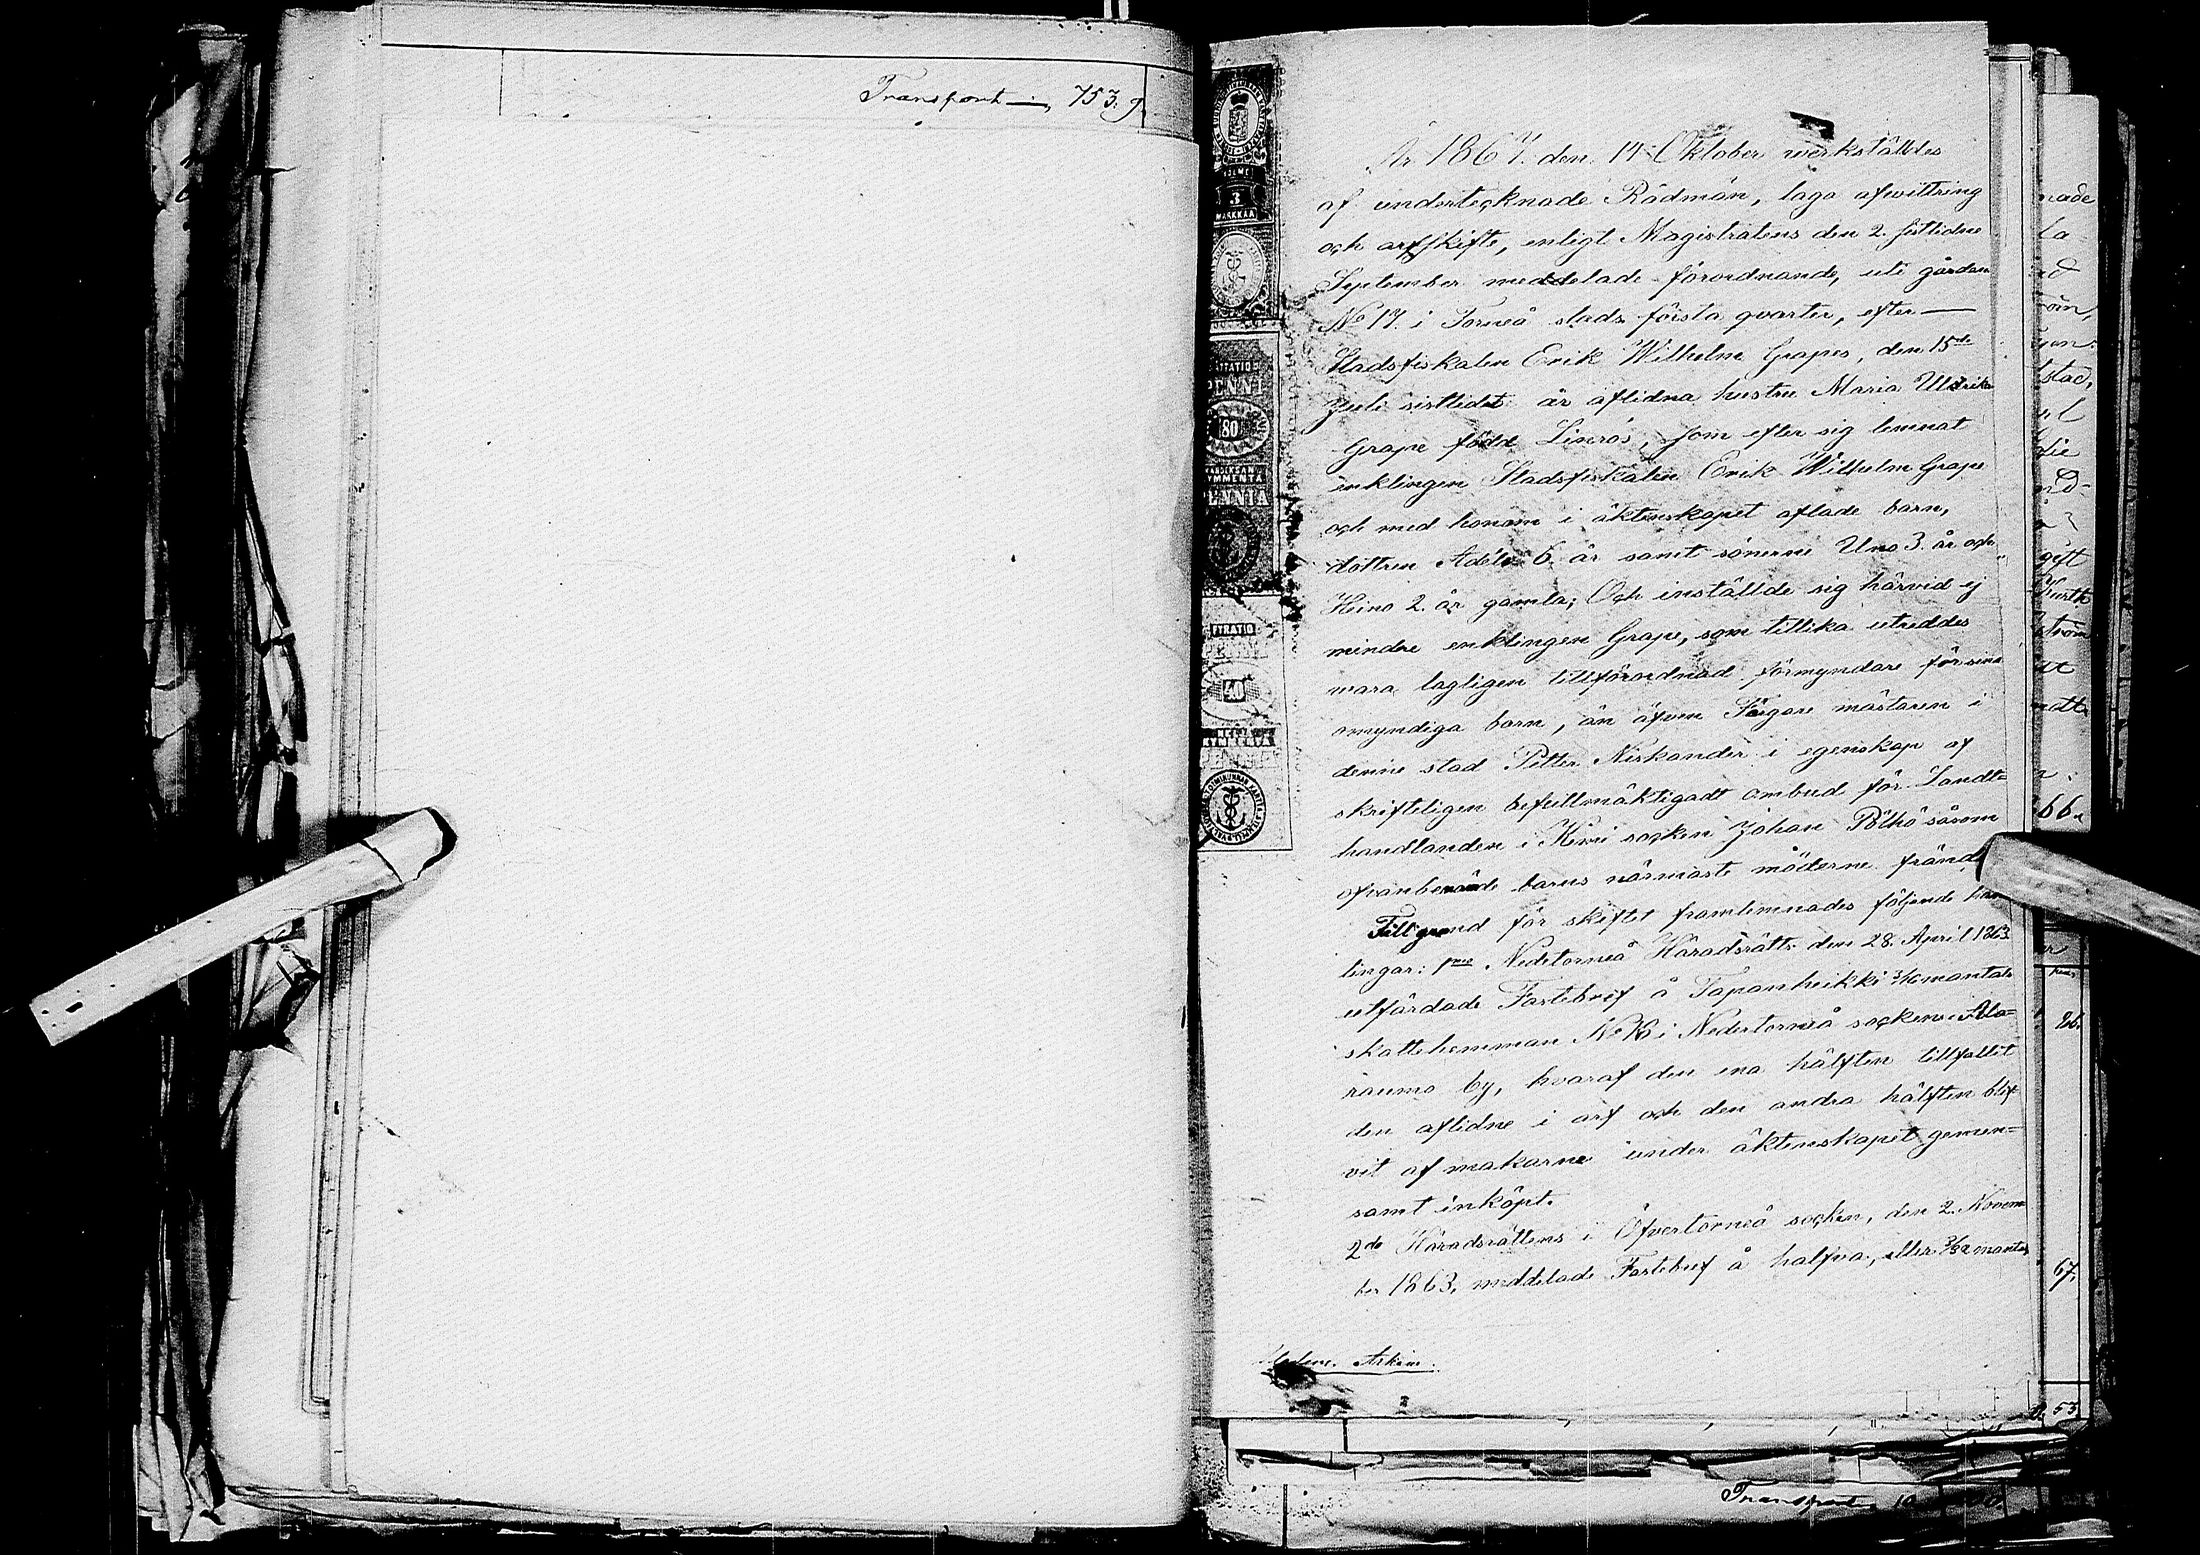 Transport — 753. 9.
År 1867. den 14 Oktober werkställdes
af undertecknade Rådmän, laga afwittring
och arfskifte, enligt Magistratens den 2. sistlidne
September meddelade förordnande, uti gården
No 17. i Torneå stads första qvarter, efter —
Stadsfiskalen Erik Wilhelm Grapes, den 15de
Juli sistledet år aflidna hustru Maria Ulrika
Grape född Liceros, som efter sig lemnat
enklingen Stadsfiskalen Erik Wilhelm Grape
och med honom i äktenskapet aflade barn,
dottren Adéle 6. år samt sönerne Uno 3. år och
Heino 2. år gamla; Och inställde sig härvid ej
mindre enklingen Grape, som tillika utreddes
wara lagligen tillförordnad förmyndare för sina
omyndiga barn, än äfven Färgare mästaren i
denne stad Petter Niskander i egenskap af
skrifteligen befullmäktigadt ombud för Landt=
handlanden i Kemi socken Johan Pölhö såsom
ofvanbenämde barns närmaste möderne frände
Till grund för skiftet framlemnades följande han
lingar: 1mo Nedetorneå Häradsrätts den 28. April 1863
utfärdade Fastebref å Tapanheikki 3/16 mantals
skattehemman No 16 i Nedertorneå socken Ala=
raumo by, hvaraf den ena hälften tillfallit
den aflidne i arf och den andra hälften blif-
vit af makarne under äktenskapet gemen=
samt inköpt.
2do Häradsrättens i Öfvertorneå socken, den 2. Novem
ber 1863. meddelade Fastebref å halfva, eller 3/32 mantals
Arkiv.
nade
la
öm,
stad,
gift
Kurth
ström
66.
26.
67.
53.
Transport